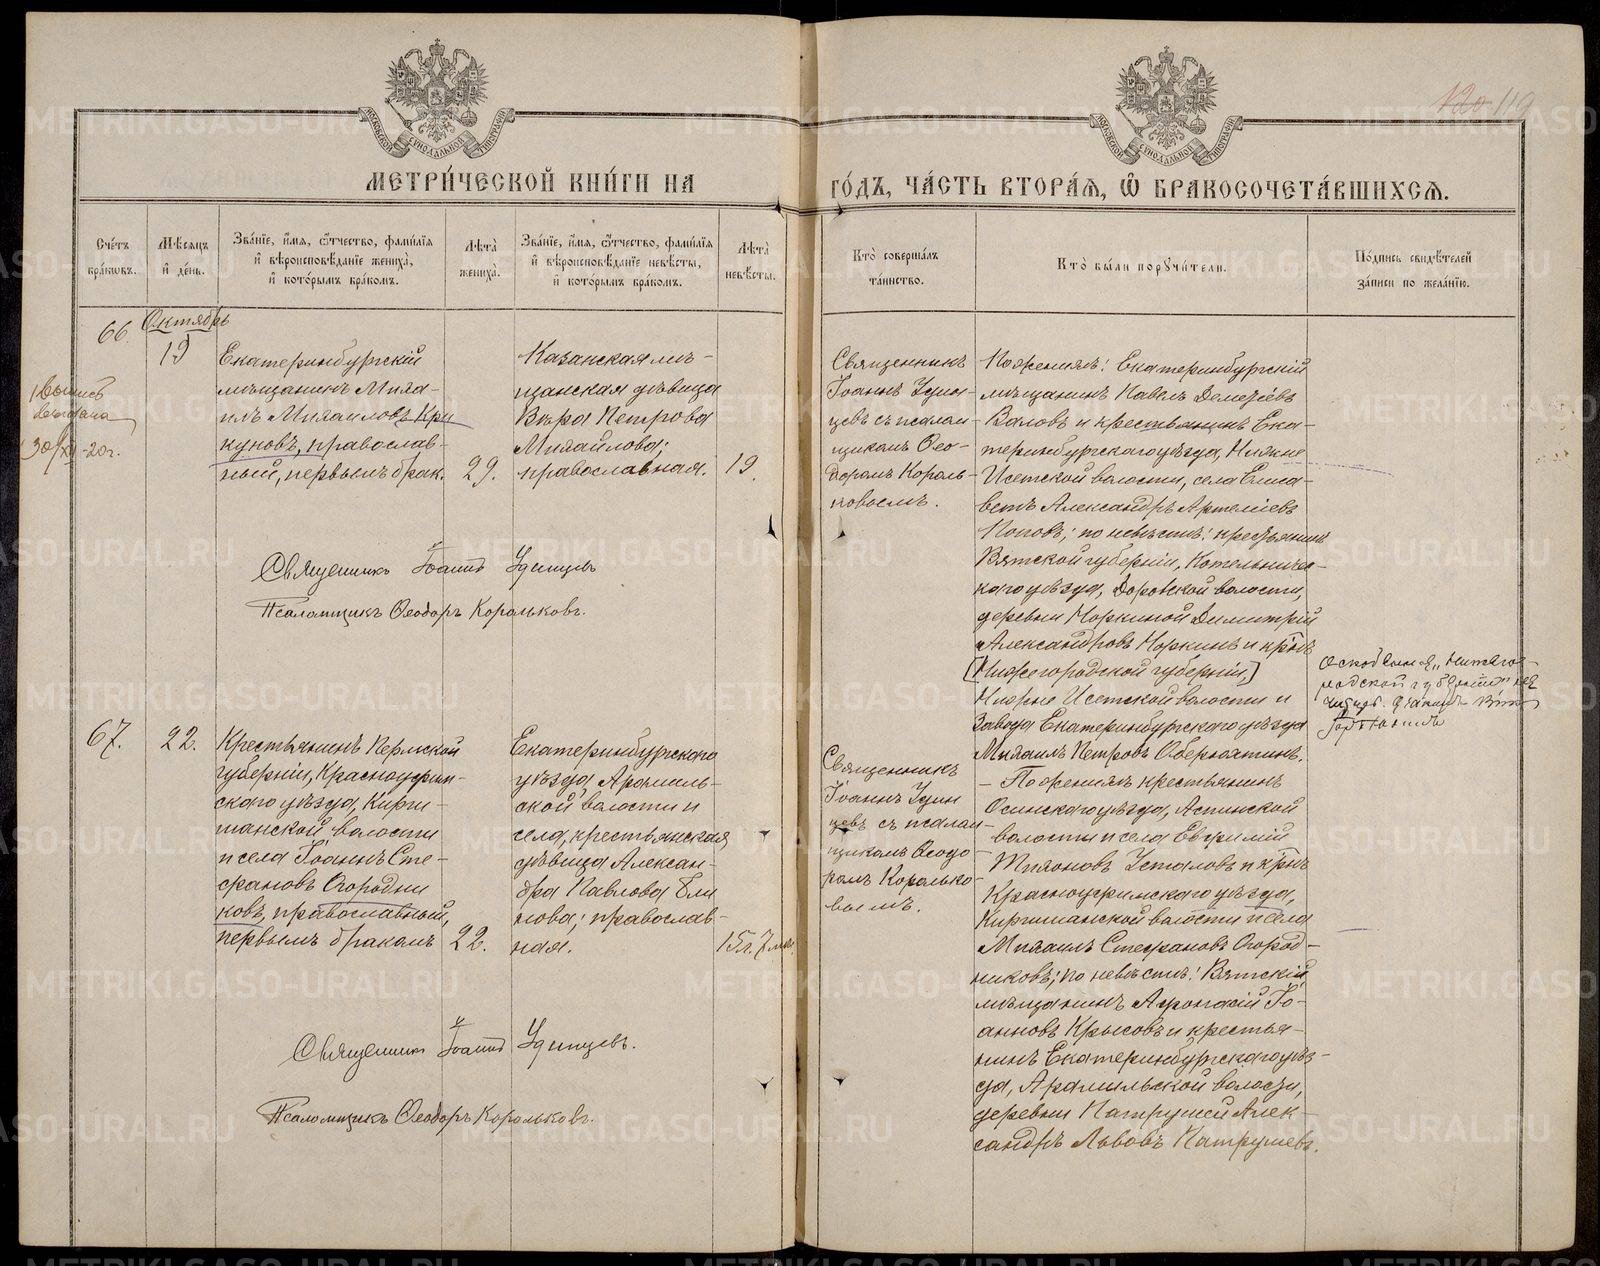 120 119
МЕТРИ́ЧЕСКОЙ КНИ́ГИ НА
ГО́ДЪ, ЧА́СТЬ ВТОРА́Я, Ѿ БРАКОСОЧЕТА́ВШИХСЯ.
Сче́тъ бра́ковъ.
Мѣ́сяцъ и҆ де́нь.
Зва́нїе, и҆́мя, ѻ҆́тчество, фами́лїя
и҆ вѣроисповѣ́данїе жениха̀,
и҆ кото́рымъ бра́комъ.
Лѣта̀ жениха̀.
Зва́нїе, и҆́мя, ѻ҆́тчество, фами́лїя
и҆ вѣроисповѣ́данїе невѣ́сты,
и҆ кото́рымъ бра́комъ.
Лѣта̀ невѣ́сты.
Кто̀ соверша́лъ
та́инство.
Кто̀ бы́ли порꙋчи́тели.
По́дпись свидѣ́телей
за́писи по жела́нїю.
66.
Октябрь
19
Выпись
выдана
30/XI-20г.
Екатеринбургскій
мѣщанинъ Миха-
илъ Михаиловъ Кри
куновъ, православ-
ный, первымъ брак.
29.
Казанская мѣ-
щанская дѣвица
Вѣра Петрова
Михайлова;
православная.
19.
Священникъ
Іоаннъ Удин-
цевъ съ псалом-
щикомъ Ѳео-
доромъ Король-
ковымъ.
По женихѣ: Екатеринбургскій
мѣщанинъ Павелъ Дементіевъ
Валовъ и крестьянинъ Ека-
теринбургскаго уѣзда, Нижне
Исетской волости, села Елиса-
ветъ Александръ Артеміевъ
Поповъ; по невѣстѣ: крестьянинъ
Вятской губерніи, Котельниче-
скаго уѣзда, Доровской волости,
деревни Норкиной Димитрій
Александровъ Норкинъ и кр-нъ
[Нижегородской губерніи,]
Нижне Исетской волости и
завода Екатеринбургскаго уѣзда
Михаилъ Петровъ Оберюхтинъ.
Священникъ Іоаннъ Удинцевъ
Псаломщикъ Ѳеодоръ Корольковъ.
67.
22.
Крестьянинъ Пермской
губерніи, Красноуфим-
скаго уѣзда, Кирги-
шанской волости
и села Іоаннъ Сте-
фановъ Огородни
ковъ, православный,
первымъ бракомъ
22.
Екатеринбургскаго
уѣзда, Арамиль-
ской волости и
села, крестьянская
дѣвица Алексан-
дра Павлова Бли
нова; православ-
ная.
15 л. 7 м.
Священникъ
Іоаннъ Удин
цевъ съ псалом-
щикомъ Ѳеодо
ромъ Королько-
вымъ.
- По женихѣ крестьянинъ
Осинскаго уѣзда, Аспинской
волости и села Евфимій
Тихоновъ Усталовъ и кр-нъ
Красноуфимскаго уѣзда,
Киргишанской волости и села
Михаилъ Стефановъ Огород-
никовъ; по невѣстѣ: Вятскій
мѣщанинъ Аѳонасій Іо-
анновъ Крысовъ и крестья-
нинъ Екатеринбургскаго уѣз-
да, Арамильской волости,
деревни Патруши Алек-
сандръ Львовъ Патрушевъ.
Священникъ Іоаннъ Удинцевъ.
Псаломщикъ Ѳеодоръ Корольковъ.